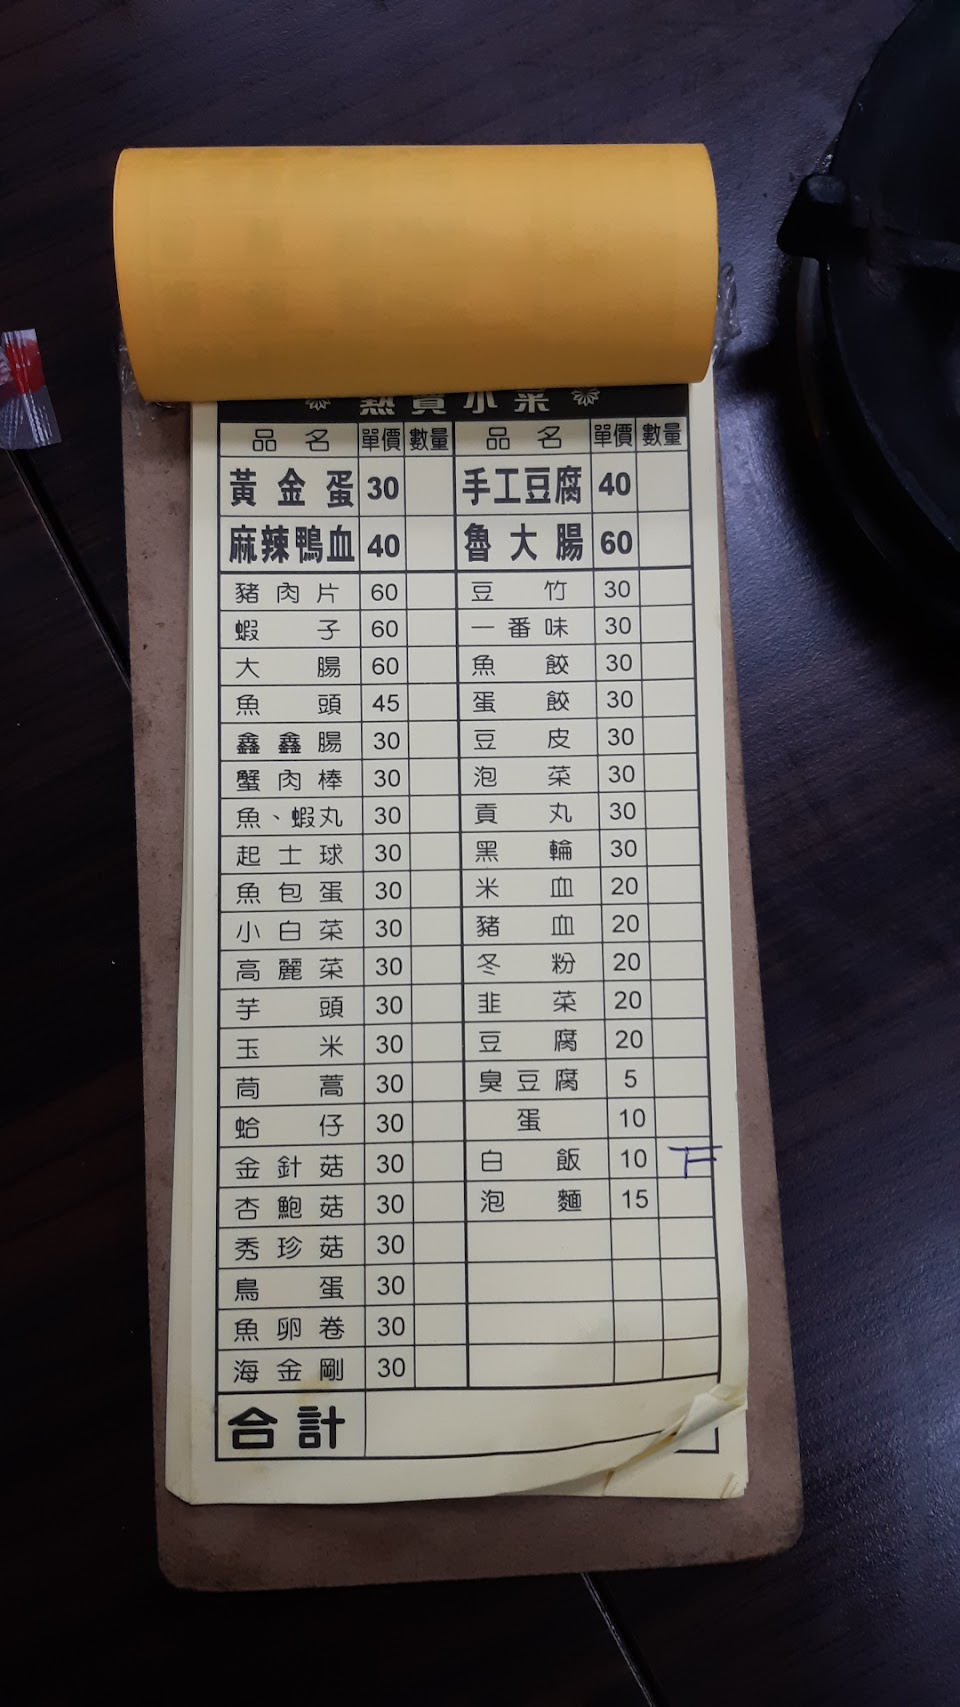 熱賣小菜
品名 單價 數量 品名 單價 數量
黃金蛋 30 手工豆腐 40
麻辣鴨血 40 魯大腸 60
豬肉片 60 豆竹 30
蝦子 60 一番味 30
大腸 60 魚餃 30
魚頭 45 蛋餃 30
鑫鑫腸 30 豆皮 30
蟹肉棒 30 泡菜 30
魚、蝦丸 30 貢丸 30
起士球 30 黑輪 30
魚包蛋 30 米血 20
小白菜 30 豬血 20
高麗菜 30 冬粉 20
芋頭 30 韭菜 20
玉米 30 豆腐 20
茼蒿 30 臭豆腐 5
蛤仔 30 蛋 10
金針菇 30 白飯 10
杏鮑菇 30 泡麵 15
秀珍菇 30
鳥蛋 30
魚卵卷 30
海金剛 30
合計